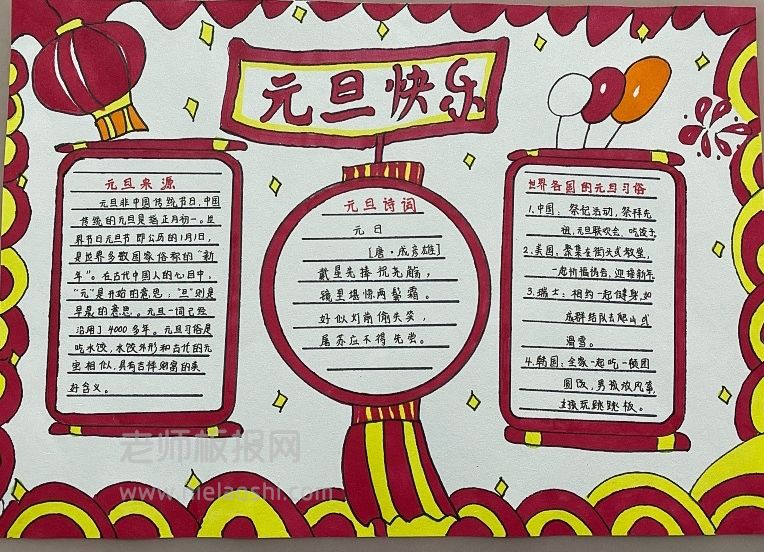 元旦快乐
元旦来源
元旦非中国传统节日,中国
传统的元旦是指正月初一。世
界节日元旦节即公历的1月1日,
是世界多数国家俗称的“新
年”。在古代中国人的心目中,
“元”是开始的意思;“旦”则是
早晨的意思。元旦一词已经
沿用了4000多年。元旦习俗是
吃水饺,水饺外形和古代的元
宝相似,具有吉祥财富的美
好含义。
元旦诗词
元日
[唐·成彦雄]
戴星先捧祝尧觞,
镜里堪惊两鬓霜。
好似灯前偷失笑,
屠苏应不得先尝。
世界各国的元旦习俗
1.中国:祭祀活动,祭拜先
祖,元旦联欢会、吃饺子
2.美国:聚集在街头或教堂,
一起祈福祷告,迎接新年
3.瑞士:相约一起健身,如
成群结队去爬山或
滑雪。
4.韩国:全家一起吃一顿团
圆饭,男孩放风筝,
女孩玩跳跳板。
老师板报网
www.nielaoshi.com